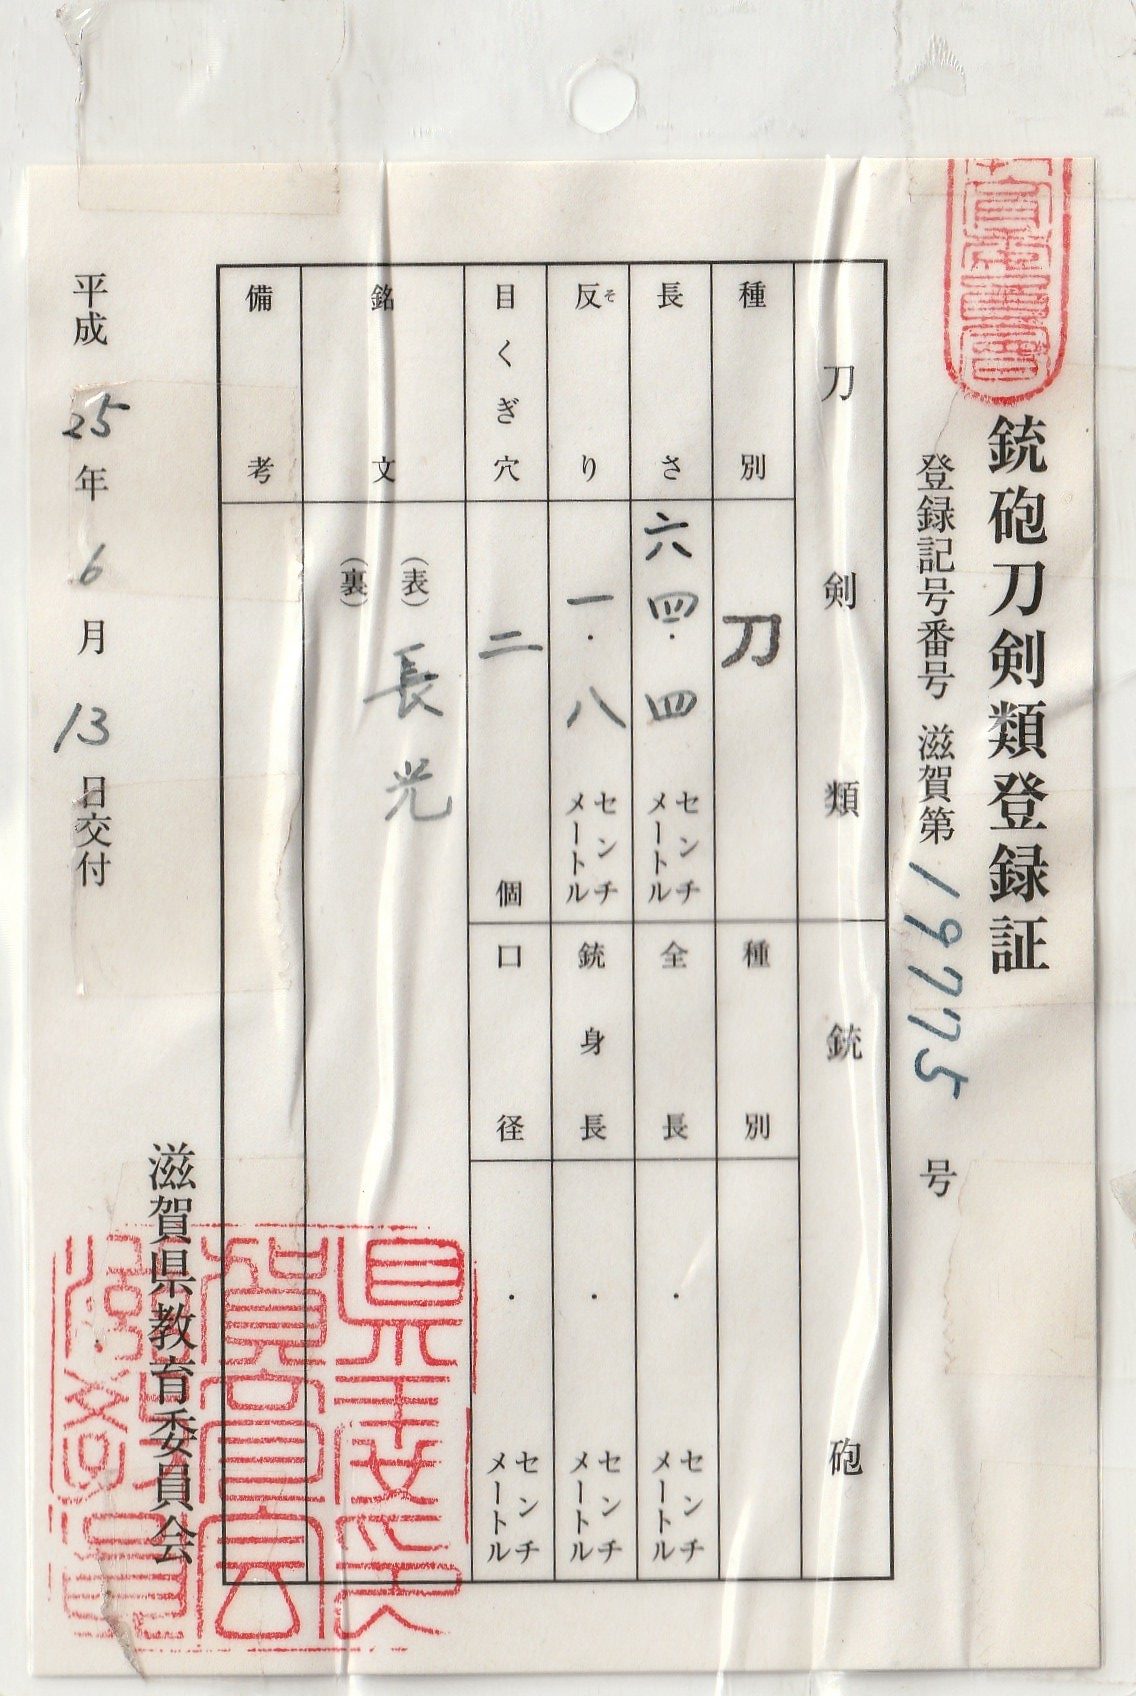 銃砲刀剣類登録証
登録記号番号 滋賀第19775号
刀剣類
種別 刀
長さ 六四.四 センチメートル
反り 一.八 センチメートル
そ
目くぎ穴 二 個
銘文 (表) 長光
(裏)
備考
銃砲
種別
全長 . センチメートル
銃身長 . センチメートル
口径 . センチメートル
平成25年6月13日交付
滋賀県教育委員会